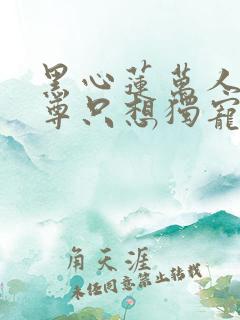 黑心蓮萬人
尊只想獨寵
角天涯
未经同意禁止转载